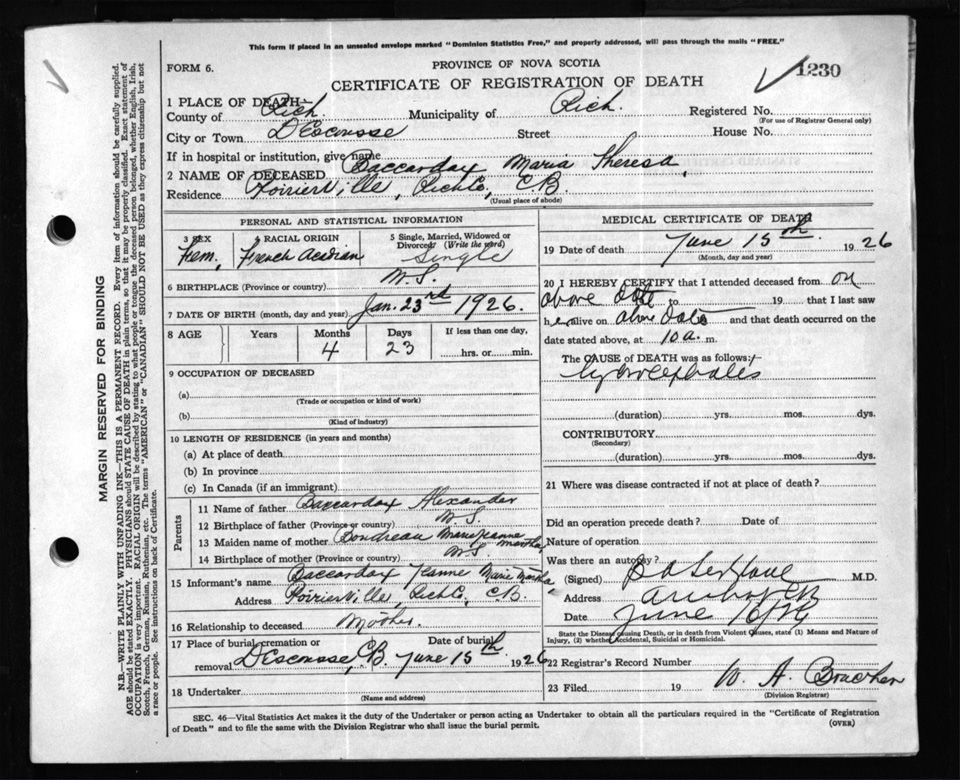 This form if placed in an unsealed envelope marked "Dominion Statistics Free," and properly addressed, will pass through the mails "FREE."
FORM 6.
PROVINCE OF NOVA SCOTIA
CERTIFICATE OF REGISTRATION OF DEATH
1230
1 PLACE OF DEATH—
County of Rich. Municipality of Rich. Registered No.
(For use of Registrar General only)
City or Town D'Escousse Street House No.
If in hospital or institution, give name
2 NAME OF DECEASED Baccardax Maria Theresa,
Residence Poirierville, Rich Co, C.B.
(Usual place of abode)
PERSONAL AND STATISTICAL INFORMATION
3 SEX Fem. 4 RACIAL ORIGIN French Acadian 5 Single, Married, Widowed or Divorced (Write the word) Single
6 BIRTHPLACE (Province or country) N.S.
7 DATE OF BIRTH (month, day and year) Jan. 23rd 1926.
8 AGE Years Months 4 Days 23 If less than one day, hrs. or min.
9 OCCUPATION OF DECEASED
(a)
(Trade or occupation or kind of work)
(b)
(Kind of industry)
10 LENGTH OF RESIDENCE (in years and months)
(a) At place of death
(b) In province
(c) In Canada (if an immigrant)
Parents
11 Name of father Baccardax Alexander
12 Birthplace of father (Province or country) N.S.
13 Maiden name of mother Boudreau Marie Jeanne Martha
14 Birthplace of mother (Province or country) N.S.
15 Informant's name Baccardax Jeanne Marie Martha
Address Poirierville Rich C., C.B.
16 Relationship to deceased Mother
17 Place of burial, cremation or removal D'Escousse, C.B. Date of burial June 15th 1926
18 Undertaker
(Name and address)
MEDICAL CERTIFICATE OF DEATH
19 Date of death June 15th 1926
(Month, day and year)
20 I HEREBY CERTIFY that I attended deceased from on
above date to 19 that I last saw
her alive on above date and that death occurred on
date stated above, at 10 a. m.
The CAUSE OF DEATH was as follows:—
hydrocephales
(duration) yrs. mos. dys.
CONTRIBUTORY
(Secondary)
(duration) yrs. mos. dys.
21 Where was disease contracted if not at place of death?
Did an operation precede death? Date of
Nature of operation
Was there an autopsy?
(Signed) M.D.
Address Arichat CB
Date June
State the Disease causing Death, or in death from Violent Causes, state (1) Means and Nature of
Injury, (2) whether Accidental, Suicidal or Homicidal.
22 Registrar's Record Number
23 Filed 19 W. A.
(Division Registrar)
SEC. 46—Vital Statistics Act makes it the duty of the Undertaker or person acting as Undertaker to obtain all the particulars required in the "Certificate of Registration
of Death" and to file the same with the Division Registrar who shall issue the burial permit. (OVER)
MARGIN RESERVED FOR BINDING
N.B.—WRITE PLAINLY WITH UNFADING INK—THIS IS A PERMANENT RECORD. Every item of information should be carefully supplied.
AGE should be stated EXACTLY. PHYSICIANS should STATE CAUSE OF DEATH in plain terms, so that it may be properly classified. Exact statement of
OCCUPATION is very important. RACIAL ORIGIN will be described by stating to what people or tongue the deceased person belonged, whether English, Irish,
Scotch, French, German, Russian, Ruthenian, etc. The terms "AMERICAN" or "CANADIAN" SHOULD NOT BE USED as they express citizenship but not
a race or people. See instructions on back of Certificate.